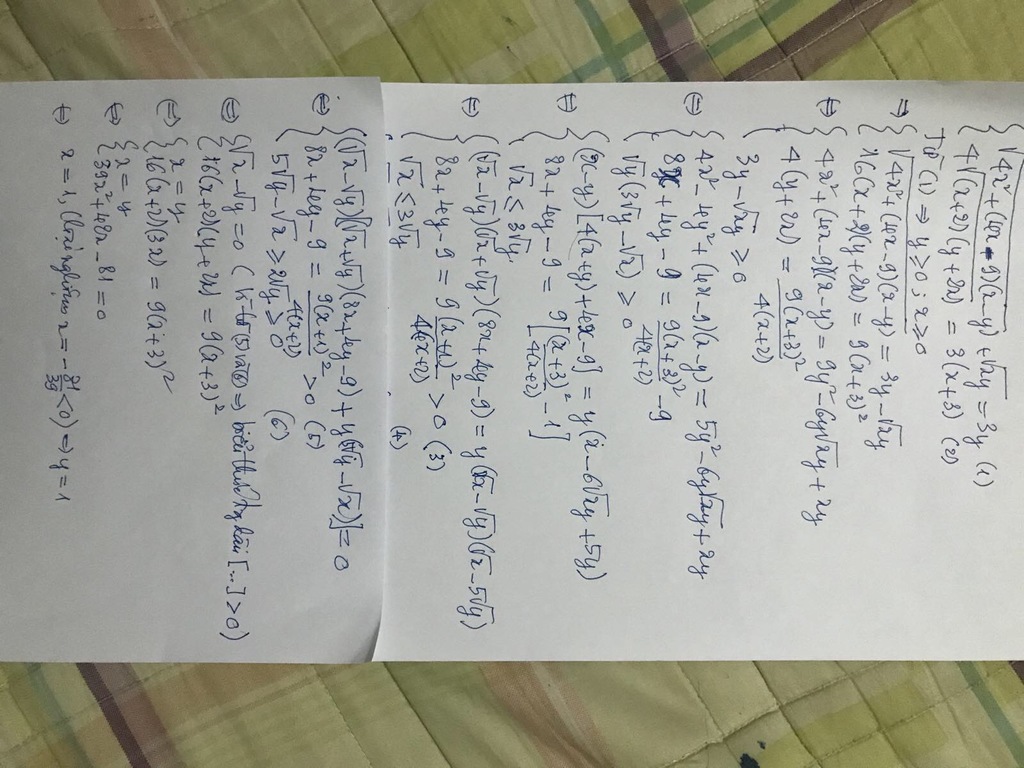 { √(4x² + (4x - 9)(x - y)) + √xy = 3y (1)
4√((x+2)(y+2x)) = 3(x+3) (2)
Từ (1) ⇒ y ≥ 0 ; x ≥ 0
⇒ { √(4x² + (4x - 9)(x - y)) = 3y - √xy
16(x+2)(y+2x) = 9(x+3)²
⇔ { 4x² + (4x - 9)(x - y) = 9y² - 6y√xy + xy
4(y + 2x) = 9(x+3)² / 4(x+2)
3y - √xy ≥ 0
⇔ { 4x² - 4y² + (4x - 9)(x - y) = 5y² - 6y√xy + xy
8x + 4y - 9 = 9(x+3)² / 4(x+2) - 9
√y(3√y - √x) ≥ 0
⇔ { (x - y)[4(x+y) + 4x - 9] = y(x - 6√xy + 5y)
8x + 4y - 9 = 9[(x+3)² / 4(x+2) - 1]
√x ≤ 3√y
⇔ { (√x - √y)(√x + √y)(8x + 4y - 9) = y(√x - √y)(√x - 5√y)
8x + 4y - 9 = 9(x+1)² / 4(x+2) > 0 (3)
√x ≤ 3√y (4)
⇔ { (√x - √y)[(√x + √y)(8x + 4y - 9) + y(5√y - √x)] = 0
8x + 4y - 9 = 9(x+1)² / 4(x+2) > 0 (5)
5√y - √x ≥ 2√y ≥ 0 (6)
⇔ { √x - √y = 0 ( từ (5) và (6) ⇒ biểu thức trong dấu [...] > 0)
16(x+2)(y+2x) = 9(x+3)²
⇔ { x = y
16(x+2)(3x) = 9(x+3)²
⇔ { x = y
39x² + 42x - 81 = 0
⇔ x = 1, (loại nghiệm x = - 81/39 < 0) ⇒ y = 1